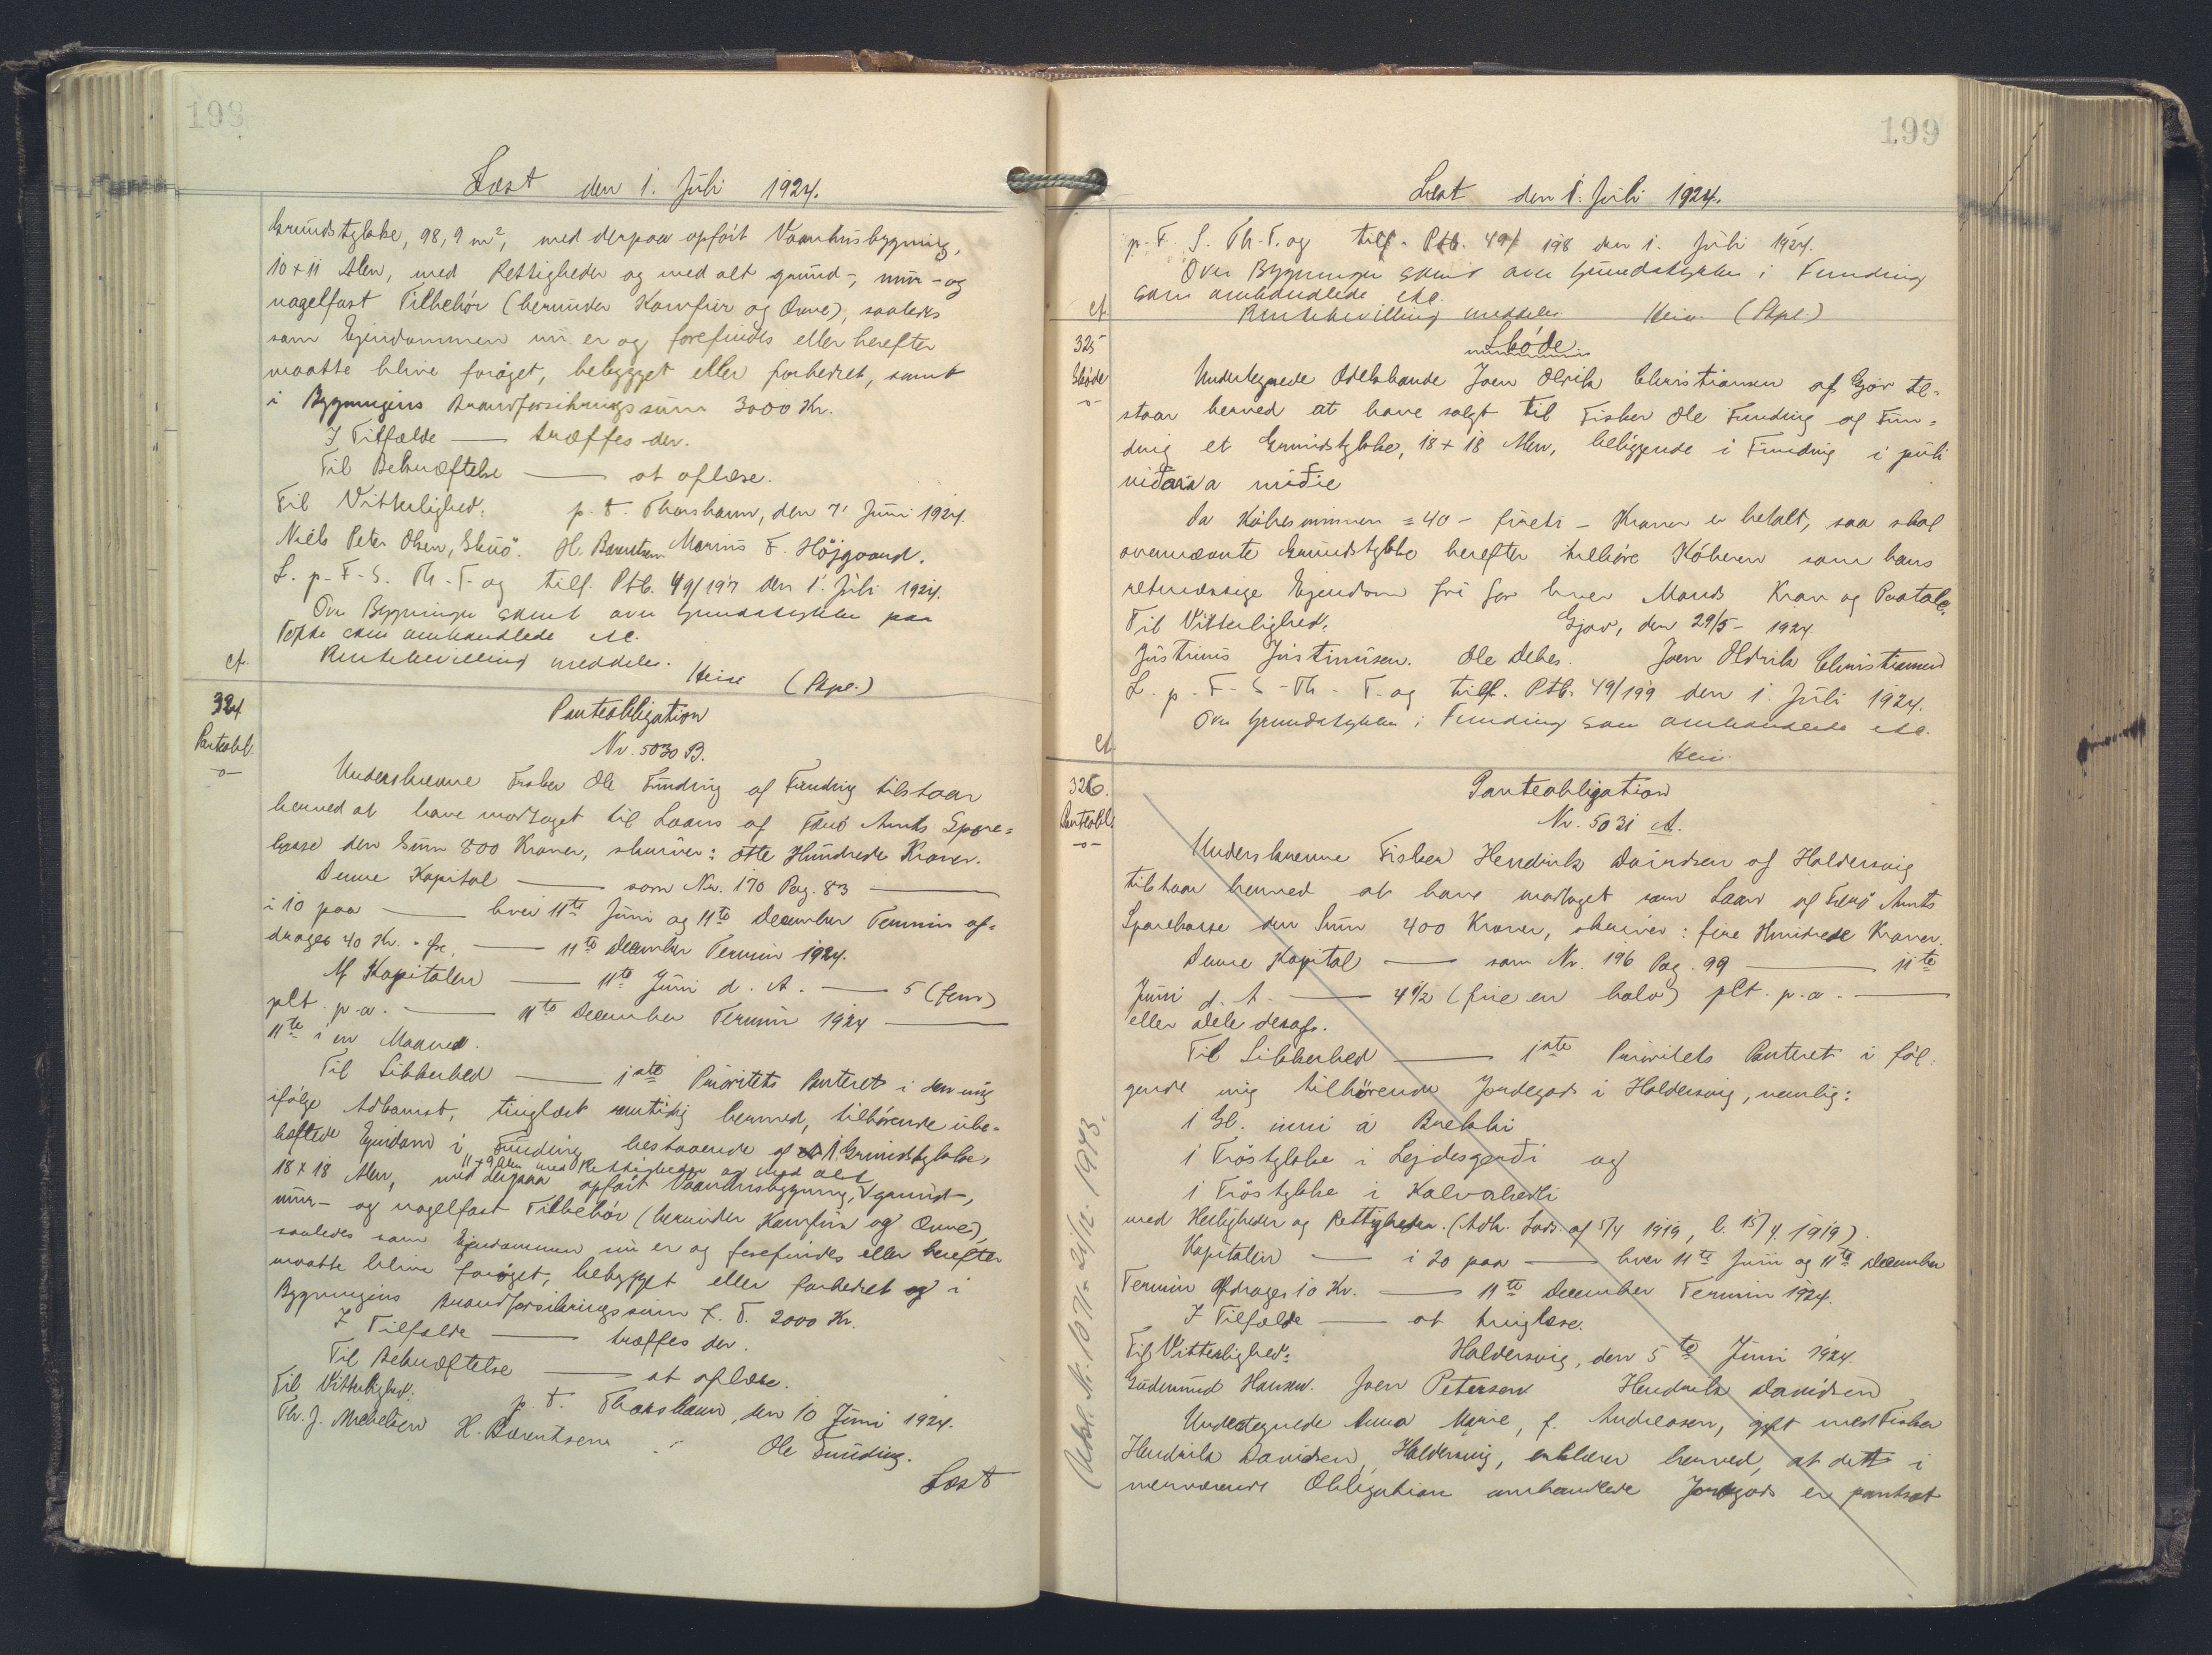 198
Læst den 1. Juli 1924.
Grundstykke, 98,9 m², med derpaa opført Vaanhusbygning,
10 + 11 Alen, med Rettigheder og med alt grund-, mur- og
nagelfast Tilbehör (herunder Komfur og Ovne), saaledes
som Ejendommen nu er og forefindes eller herefter
maatte blive forøget, bebygget eller forbedret, samt
i Bygningens Brandforsikringssum 3000 Kr.
I Tilfælde — træffes der.
Til Bekræftelse — at aflæse.
Til Vitterlighed: p. t. Thorshavn, den 7' Juni 1924.
Niels Peter Olsen, Skuö. H. Barentsen Marius F. Höjgaard.
L. p. F. S. Th. T. og tilf. Ptb. 49/197 den 1. Juli 1924.
Over Bygninger samt over Grundstykke paa
som omhandlede etc.
cf. Rentebevilling meddeles. Heise (Stpl.)
324 Pantobl.
Panteobligation
Nr. 5030 B.
Underskrevne Fisker Ole Funding af Funding tilstaar
herved at have modtaget til Laans af Færö Amts Spare-
kasse den Sum 800 Kroner, skriver: otte Hundrede Kroner.
Denne Kapital — som Nr. 170 Pag. 83 —
i 10 paa — hver 11te Juni og 11te December Termin af-
drages 40 Kr. — 11te December Termin 1924.
Af Kapitalen — 11te Juni d. A. — 5 (fem)
pCt. p. a. — 11te December Termin 1924 —
11te i en Maaned.
Til Sikkerhed — 1ste Prioritets Panteret i den mig
ifølge Adkomst, tinglæst samtidig hermed, tilhørende ube-
hæftede Ejendom i Funding bestaaende af 1 Grundstykke,
11 + 9 Alen med Rettigheder og med alt
18 x 18 Alen, med derpaa opført Vaanhusbygning, V grund-,
mur- og nagelfast Tilbehör (herunder Komfur og Ovne),
saaledes som Ejendommen nu er og forefindes eller herefter
maatte blive forøget, bebygget eller forbedret og i
Bygningens Brandforsikringssum f. T. 2000 Kr.
I Tilfælde — træffes der.
Til Bekræftelse — at aflæse.
Til Vitterlighed: p. t. Thorshavn, den 10 Juni 1924.
Th. J. Michelsen H. Barentsen Ole Funding.
Læst
199
Læst den 1. Juli 1924.
p. F. S. Th. T. og tilf. Ptb. 49/198 den 1. Juli 1924.
Over Bygninger samt over Grundstykke i Funding
som omhandlede etc.
cf. Rentebevilling meddeles. Heise (Stpl.)
325 Skøde
Skøde
Undertegnede Odelsbonde Joen Olrik Christiansen af Gjov til-
staar herved at have solgt til Fisker Ole Funding af Fun-
ding et Grundstykke, 18 + 18 Alen, beliggende i Funding i
Da Købesummen = 40 - fireti - Kroner er betalt, saa skal
ovennævnte Grundstykke herefter tilhøre Køberen som hans
retmæssige Ejendom fri for hver Mands Krav og Paatale.
Til Vitterlighed: Gjov, den 29/5 - 1924
Justinus Justinusen. Ole Debes. Joen Oldrik Christiansen
L. p. F. S. Th. T. og tilf. Ptb. 49/199 den 1. Juli 1924.
Over Grundstykke i Funding som omhandlede etc.
cf. Heise
326. Pantobl.
Panteobligation
Nr. 5031 A.
Underskrevne Fisker Hendrik Davidsen af Haldersvig
tilstaar herved at have modtaget som Laan af Færö Amts
Sparekasse den Sum 400 Kroner, skriver: fire Hundrede Kroner.
Denne Kapital — som Nr. 196 Pag. 99 — 11te
Juni d. A. — 4½ (fire en halv) pCt. p. a. —
eller dele deraf.
Til Sikkerhed — 1ste Prioritets Panteret i föl-
gende mig tilhörende Jordegods i Haldersvig, nemlig:
1 Gl. inni á Brekki
1 Tröstykke i Lejdesgerði og
1 Tröstykke i
med Herligheder og Rettigheder. (Adk. Lods. af 5/4 1919, l. 15/4 1919).
Kapitalen — i 20 paa — hver 11te Juni og 11te December
Termin afdrages 10 Kr. — 11te December Termin 1924.
I Tilfælde — at tinglæse.
Til Vitterlighed: Haldersvig, den 5te Juni 1924.
Gudmund Hansen. Joen Petersen Hendrik Davidsen
Undertegnede Anna Marie, f. Andreasen, gift med Fisker
Hendrik Davidsen, Haldersvig, erklærer herved, at det i
nærværende Obligation omhandlede Jordegods er pantsat